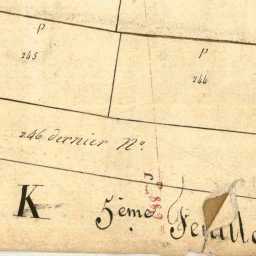 P
P
245
246
246 dernier N°.
K 5ème Feuille